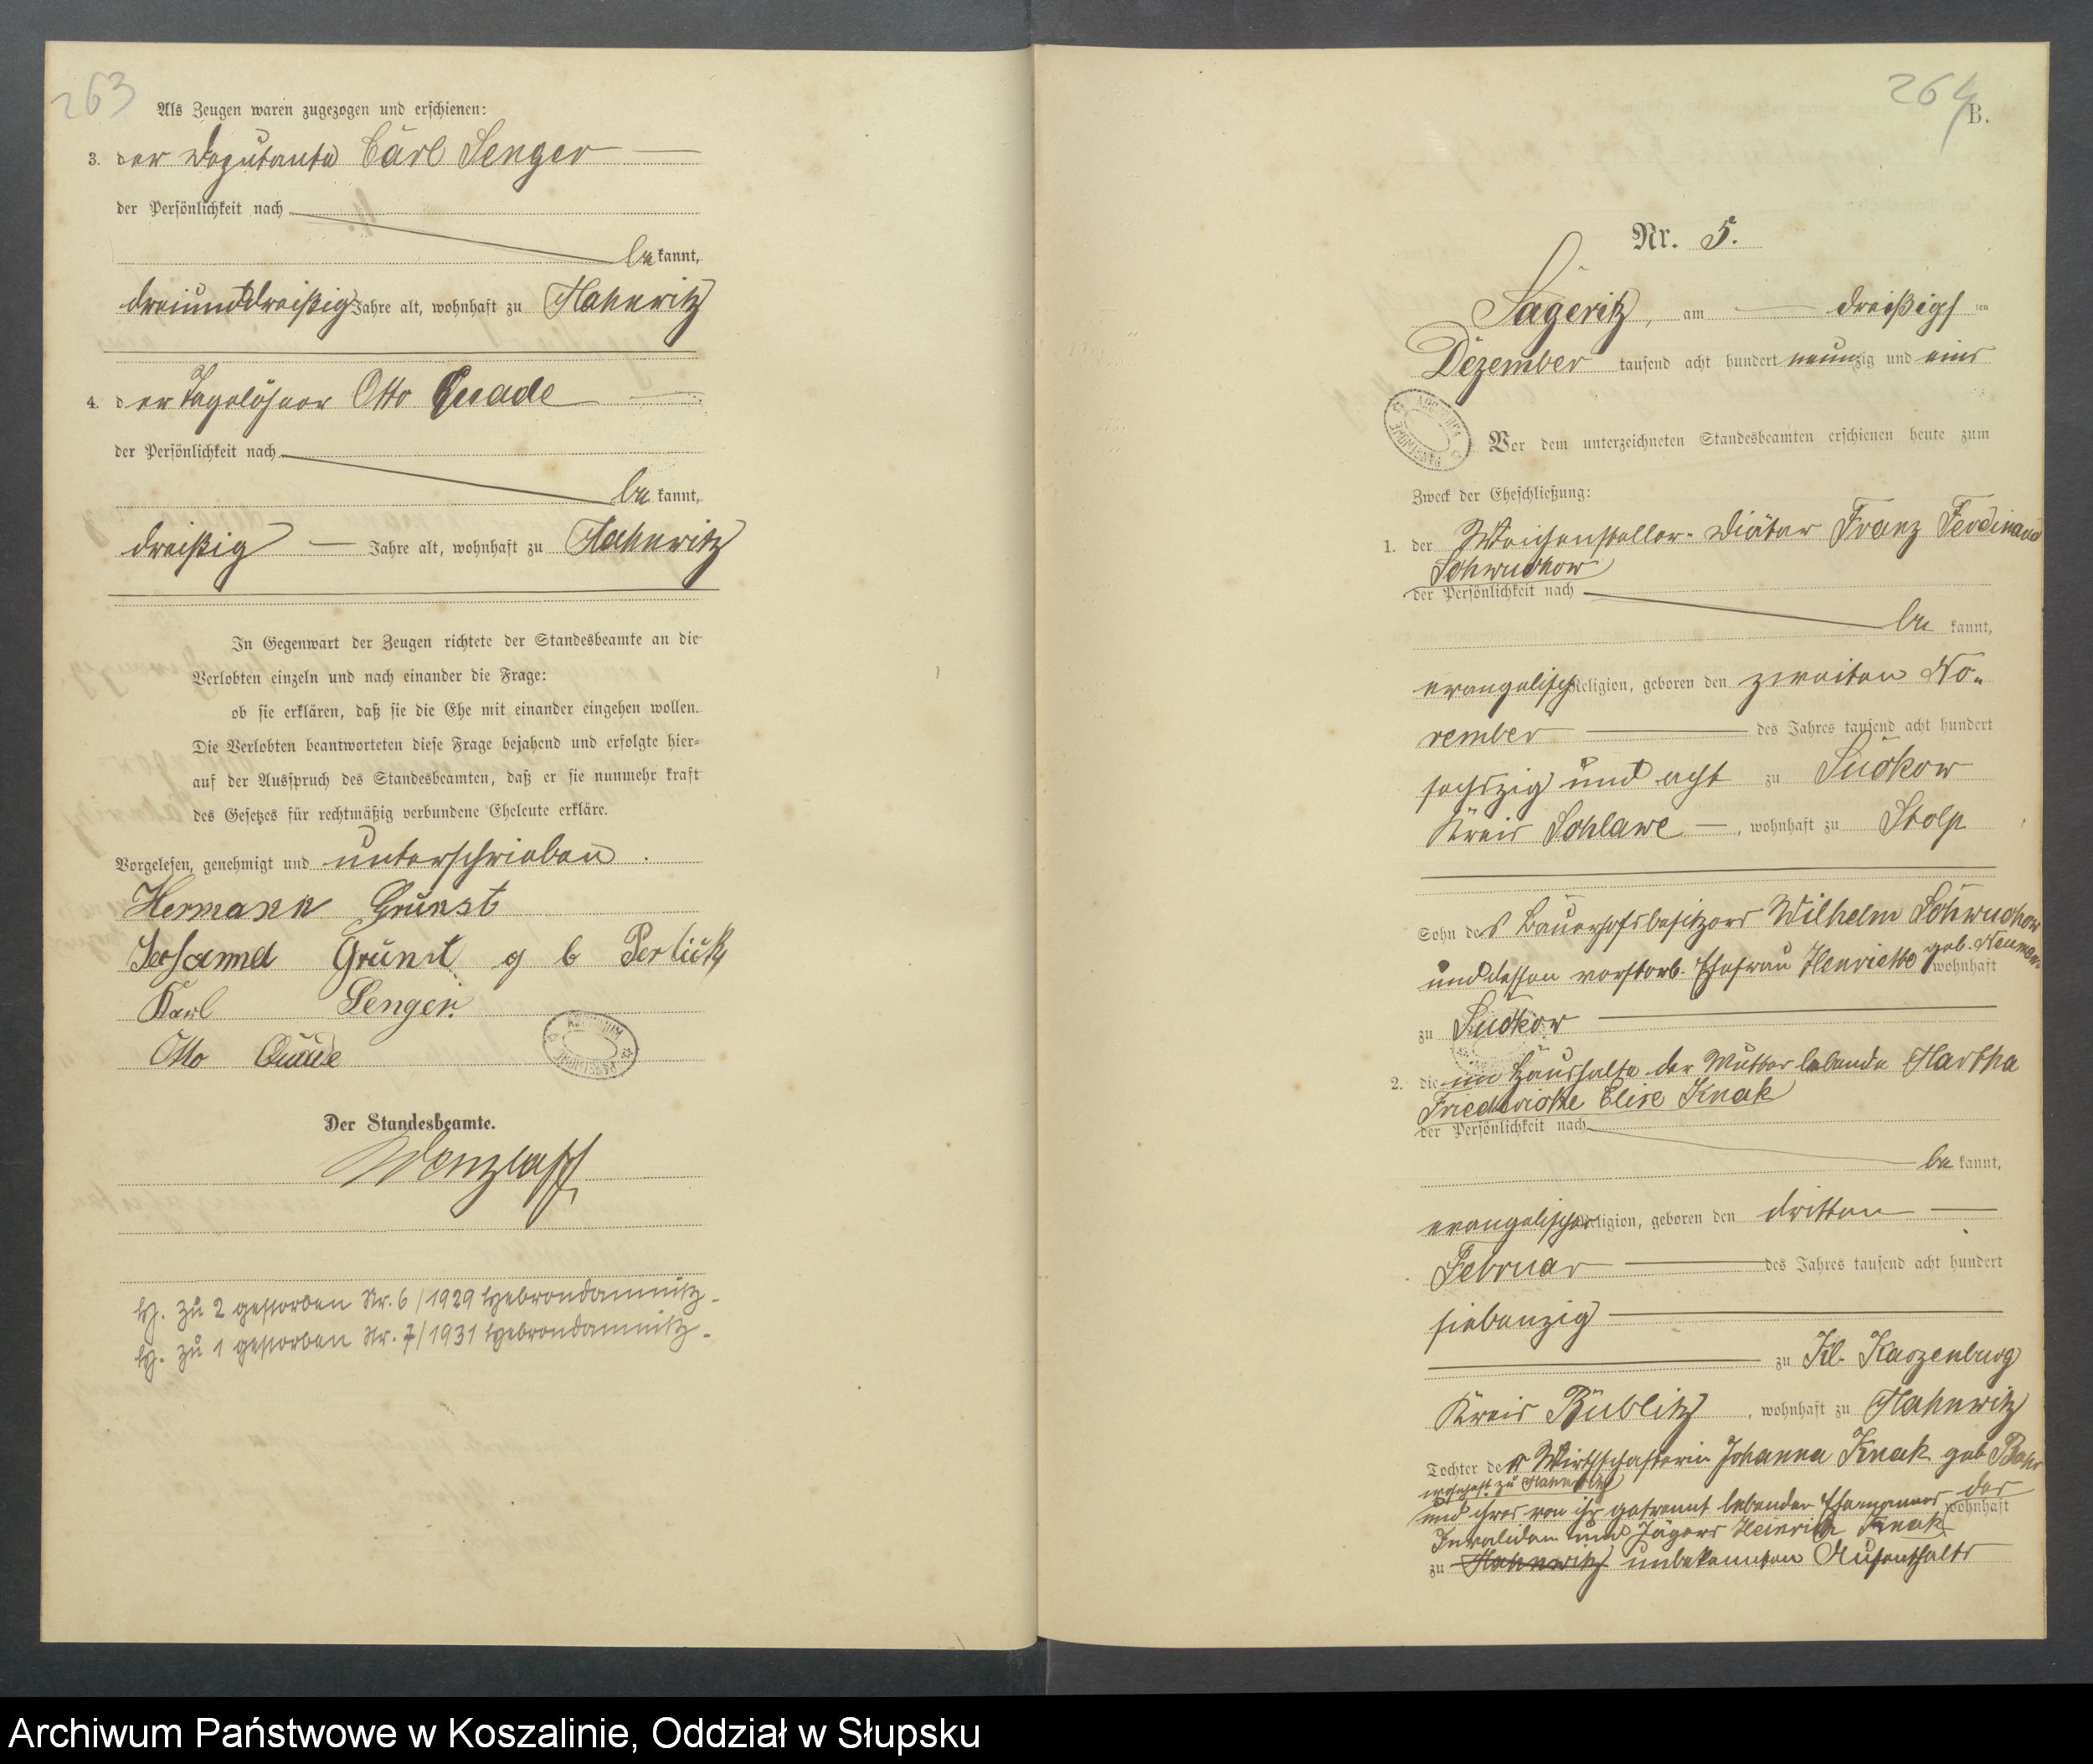 263
Als Zeugen waren zugezogen und erschienen:
3. der Deputante Carl Senger
der Persönlichkeit nach
bekannt,
dreiunddreißig Jahre alt, wohnhaft zu Hahnwitz
4. der Tagelöhner Otto Quade
der Persönlichkeit nach
bekannt,
dreißig Jahre alt, wohnhaft zu Hahnwitz
In Gegenwart der Zeugen richtete der Standesbeamte an die
Verlobten einzeln und nach einander die Frage:
ob sie erklären, daß sie die Ehe mit einander eingehen wollen.
Die Verlobten beantworteten diese Frage bejahend und erfolgte hier-
auf der Ausspruch des Standesbeamten, daß er sie nunmehr kraft
des Gesetzes für rechtmäßig verbundene Eheleute erkläre.
Vorgelesen, genehmigt und unterschrieben.
Hermann Grunst
Grunst g b Perlick
Karl Senger.
Otto Quade
ARCHIWUM PAŃSTWOWE
Der Standesbeamte.
Wenzlaff
H. zu 2 gestorben Nr. 6/1929 Hebrondamnitz.
H. zu 1 gestorben Nr. 7/1931 Hebrondamnitz.
264
B.
Nr. 5.
Sageritz, am dreißigsten
Dezember tausend acht hundert neunzig und eins
ARCHIWUM PAŃSTWOWE
Vor dem unterzeichneten Standesbeamten erschienen heute zum
Zweck der Eheschließung:
1. der Weichensteller-Diätar Franz Ferdinand
Schwuchow
der Persönlichkeit nach
bekannt,
evangelisch Religion, geboren den zweiten No-
vember des Jahres tausend acht hundert
sechszig und acht zu Suckow
Kreis Schlawe, wohnhaft zu Stolp
Sohn des Bauerhofsbesitzers Wilhelm Schwuchow
und dessen verstorb. Ehefrau Henriette geb. Neumann
wohnhaft
zu Suckow
2. die im Haushalte der Mutter lebende Martha
Friedericke Elise Knak
der Persönlichkeit nach
bekannt,
evangelischer Religion, geboren den dritten
Februar des Jahres tausend acht hundert
siebenzig
zu Kl. Karzenburg
Kreis Bublitz, wohnhaft zu Hahnwitz
Tochter der Wirthschafterin Johanna Knak geb
wohnhaft zu Hahnwitz
und ihres von ihr getrennt lebenden Ehemannes des wohnhaft
Invaliden und Jägers Heinrich Knak
zu Hahnwitz unbekannten Aufenthalts
Archiwum Państwowe w Koszalinie, Oddział w Słupsku